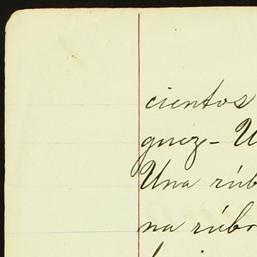 cientos
guez- U
Una rúb
na rúbr